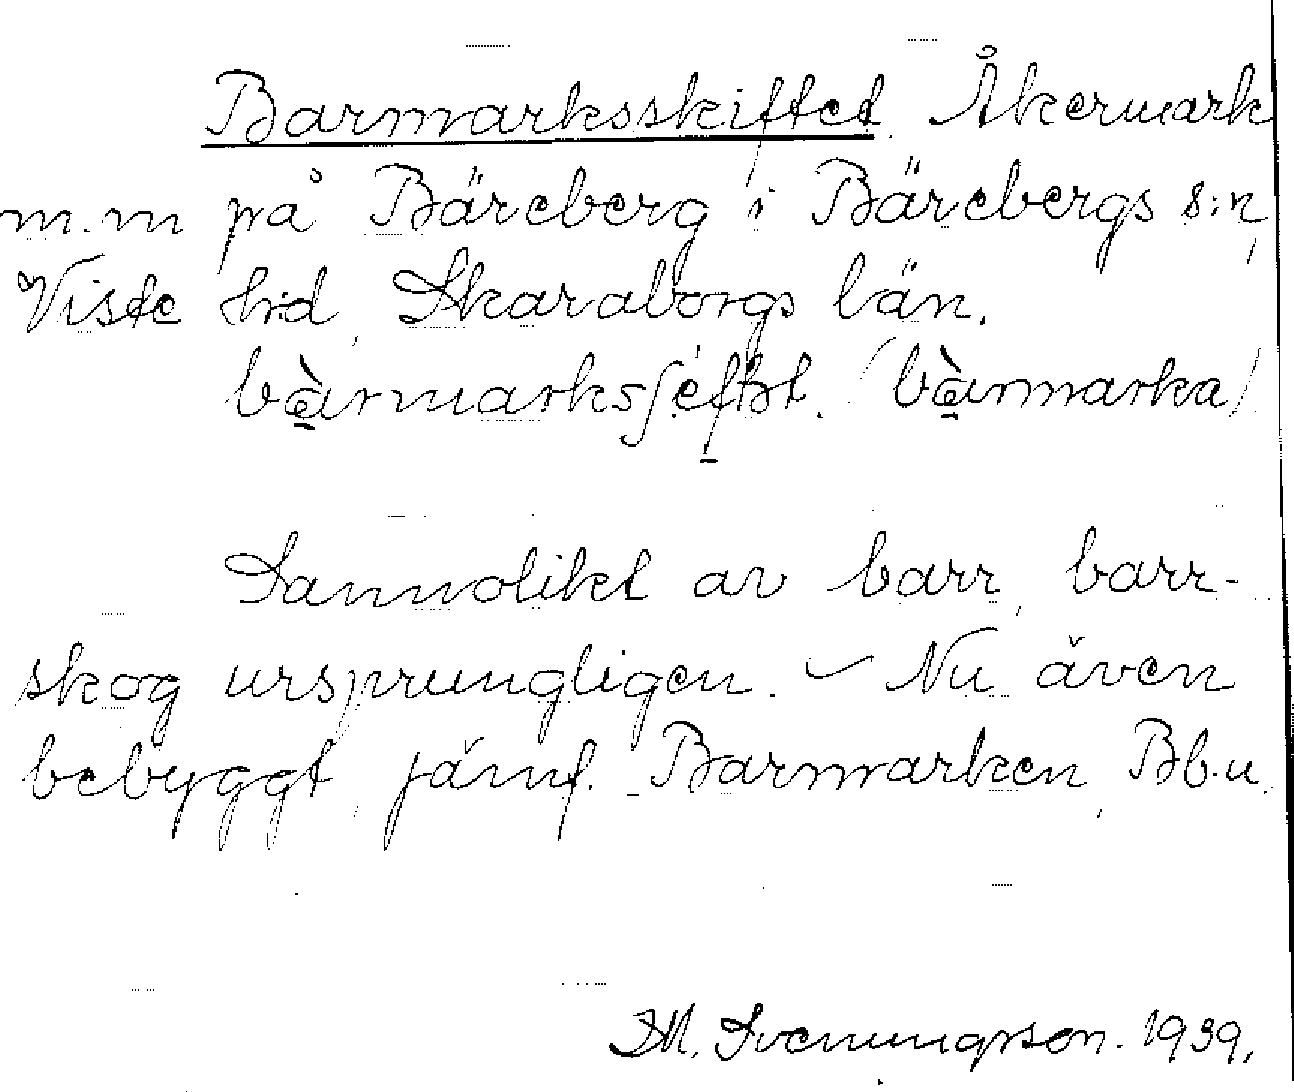 Barmarksskiftet. Åkermark
m.m på Bäreberg i Bärebergs s:n,
Viste hd, Skaraborgs län.
bàrmarksʃeftət. (bàrmarka)
Sannolikt av barr, barr-
skog ursprungligen. – Nu även
bebyggt, jämf. Barmarken, Bb.u.
M. Svenungsson. 1939.